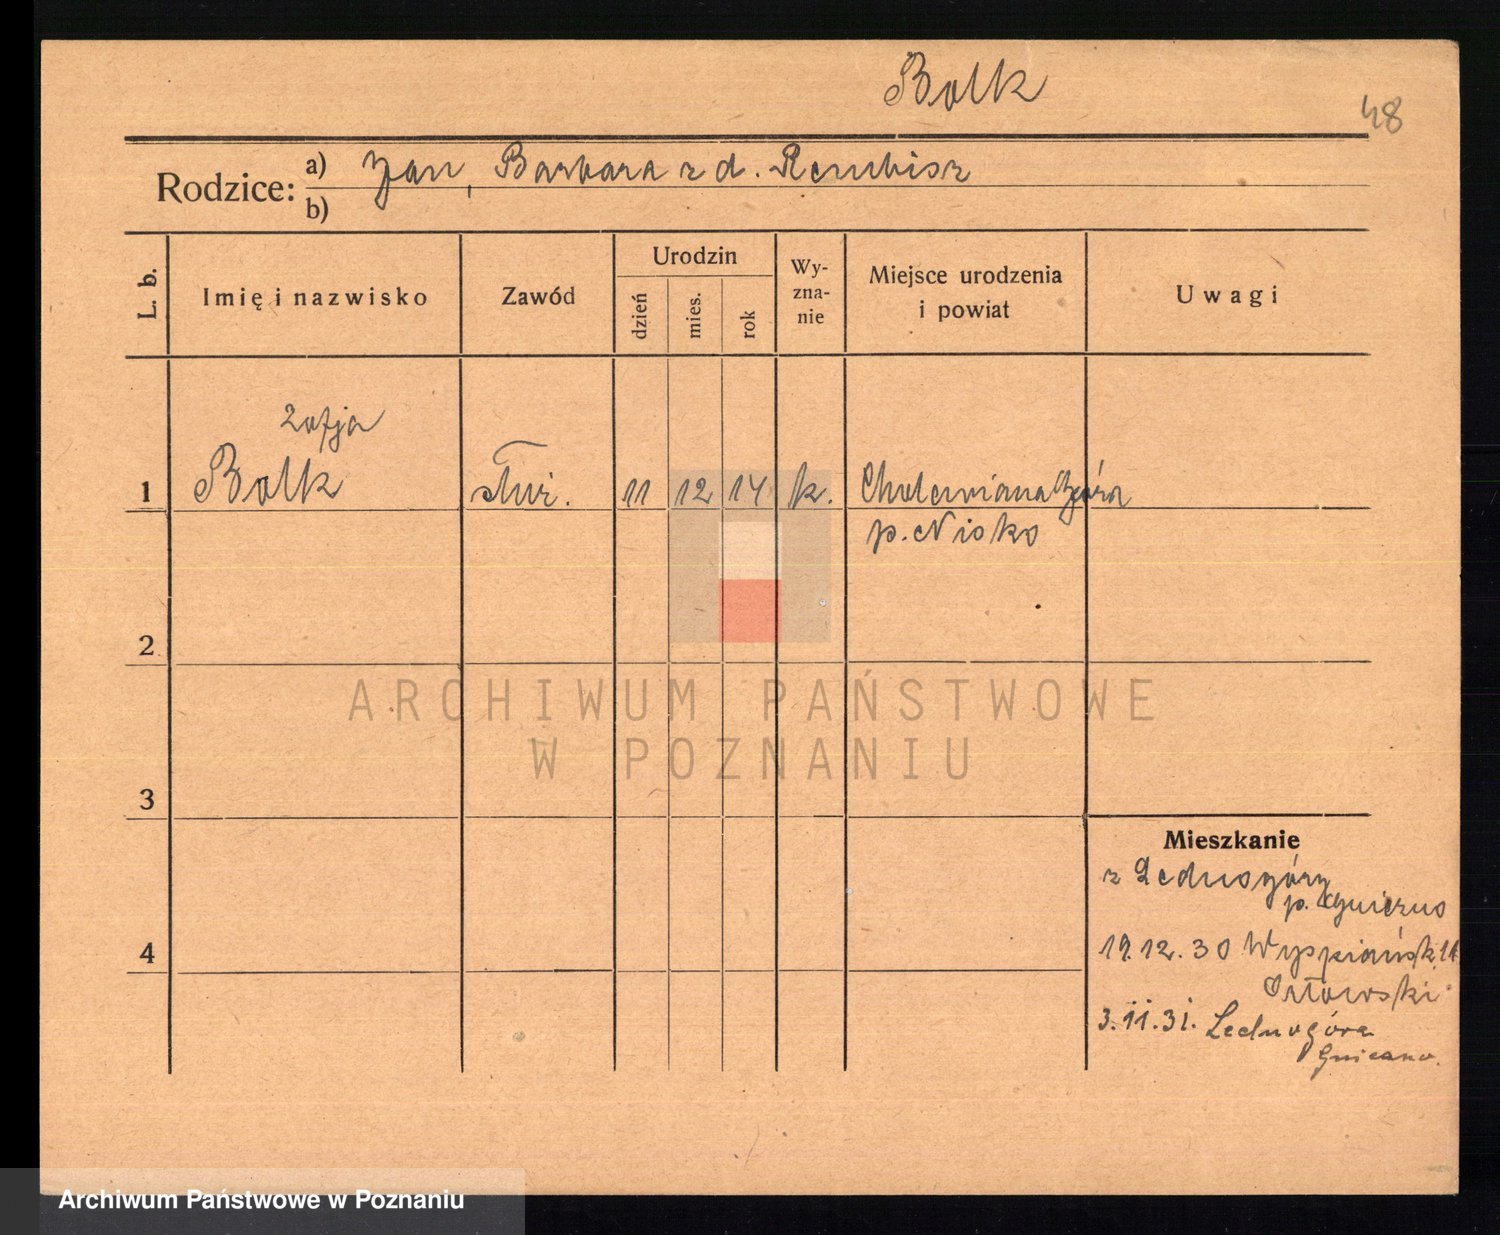 Bolk
48
Rodzice: a) Jan, Barbara z d. Rembisz
b)
L. b.
Imię i nazwisko
Zawód
Urodzin
dzień
mies.
rok
Wy-
zna-
nie
Miejsce urodzenia
i powiat
Uwagi
Zofja
1 Bolk służ. 11 12 14 k. Cholewiana Góra
p. Nisko
2
ARCHIWUM PAŃSTWOWE
W POZNANIU
3
Mieszkanie
z Lednogóry
p. Gniezno
4
19.12.30 Wyspiańsk.
Orłowski
3.11.31. Lednogóra
Gniezno.
Archiwum Państwowe w Poznaniu